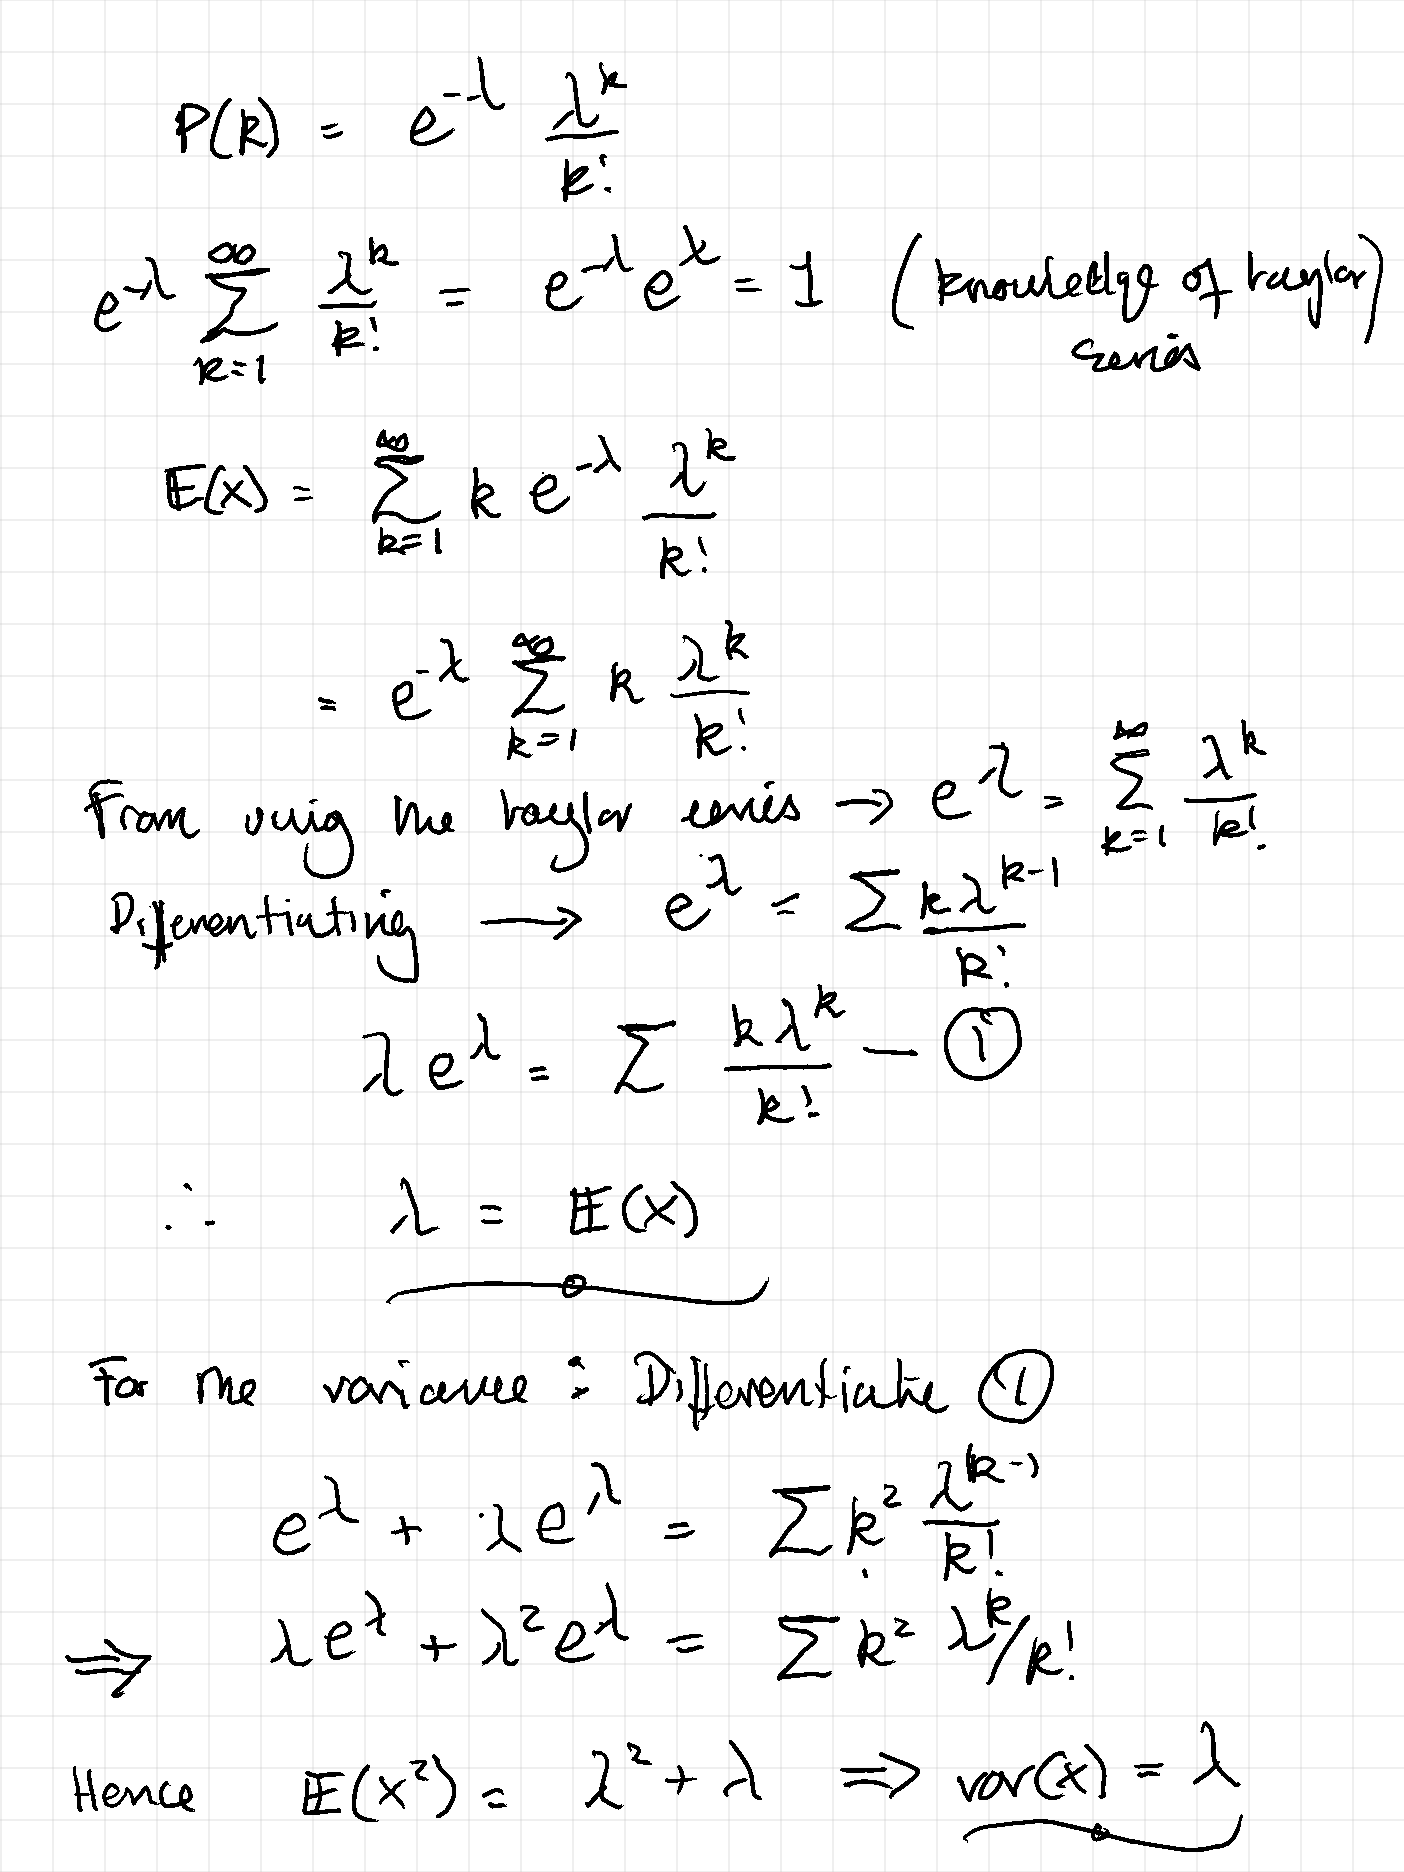 P(k) = e^{-λ} λ^k / k!
e^{-λ} ∑_{k=1}^{∞} λ^k / k! = e^{-λ} e^{λ} = 1 (knowledge of taylor series)
E(X) = ∑_{k=1}^{∞} k e^{-λ} λ^k / k!
= e^{-λ} ∑_{k=1}^{∞} k λ^k / k!
From the taylor series → e^{λ} = ∑_{k=1}^{∞} λ^k / k!
Differentiating → e^{λ} = ∑ kλ^{k-1} / k!
λ e^{λ} = ∑ kλ^k / k! — ①
∴ λ = E(X)
For the variance : Differentiate ①
e^{λ} + λe^{λ} = ∑ k² λ^{(k-1} / k!
⇒ λe^{λ} + λ²e^{λ} = ∑ k² λ^k / k!
Hence E(X²) = λ² + λ ⇒ var(X) = λ